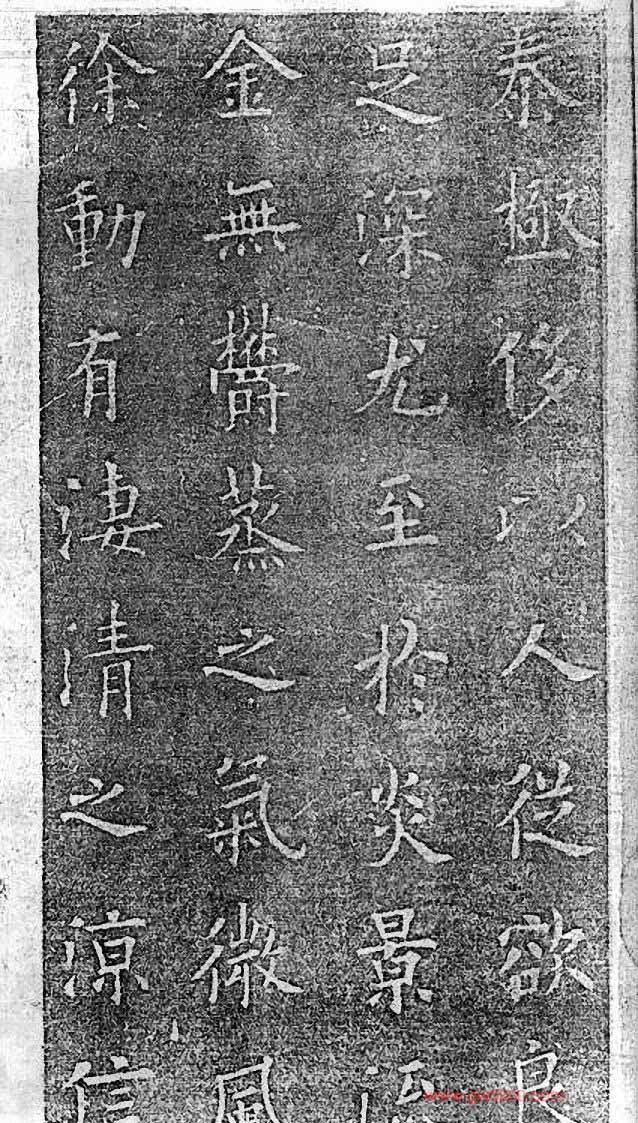 泰極侈以人從欲良
足深尤至於炎景流
金無鬱蒸之氣微風
徐動有淒清之涼信